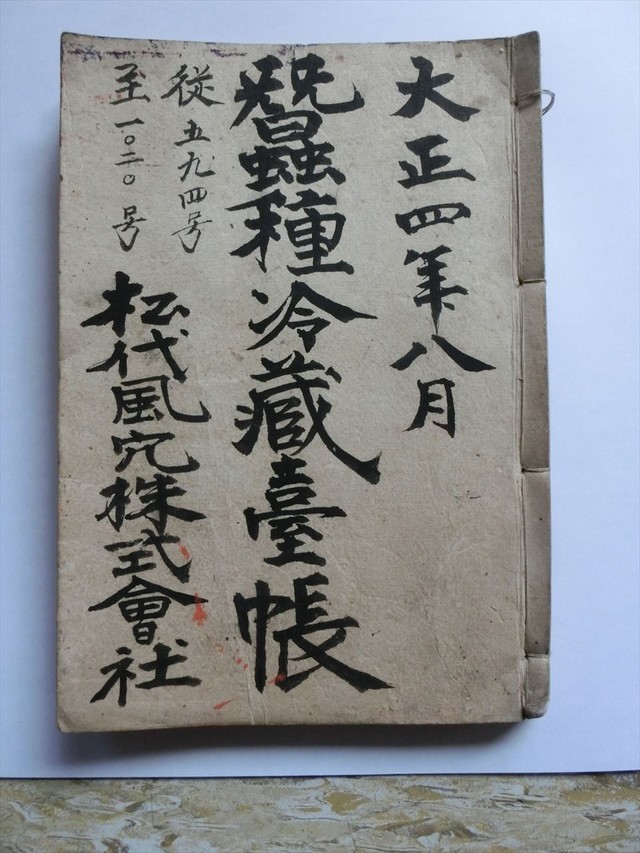 大正四年八月
蠶種冷藏臺帳
從五九四号
至一〇二〇号
松代風穴株式會社